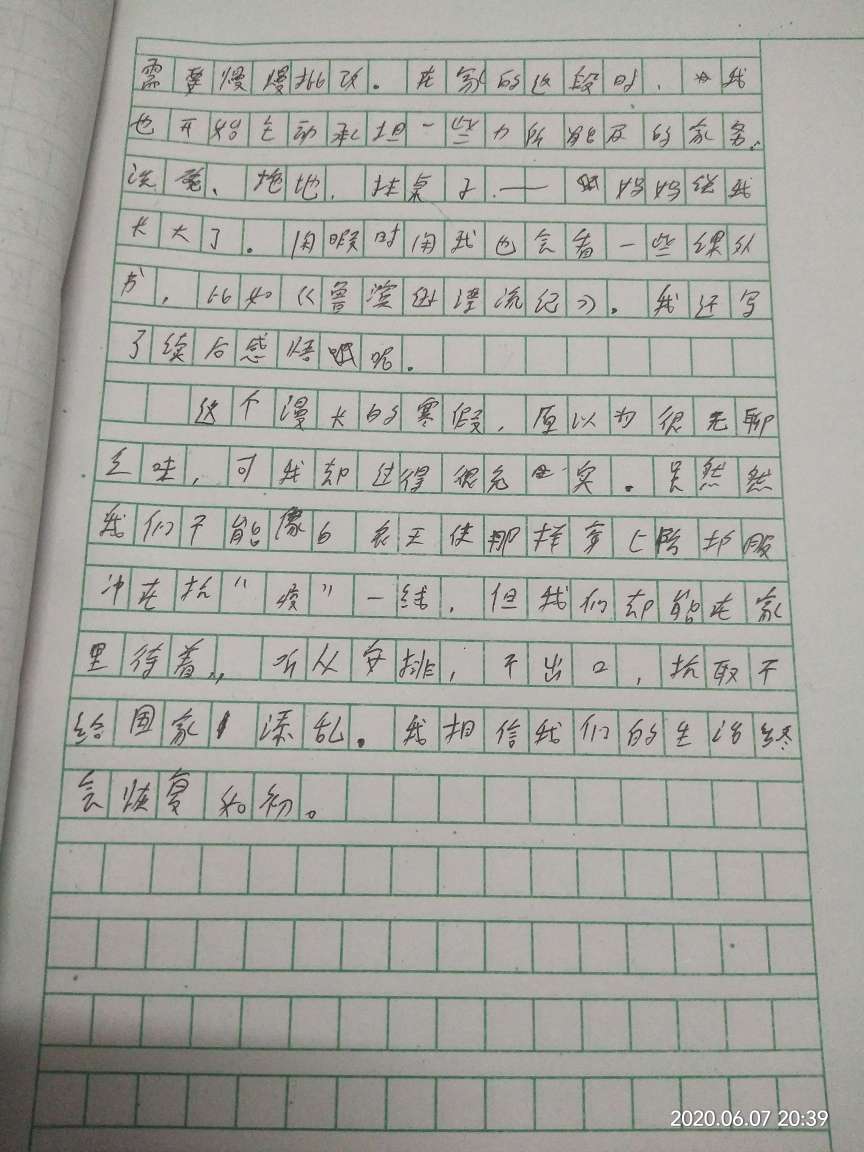 需要慢慢批改。在家的这段时,我
也开始主动承担一些力所能及的家务,
洗碗、拖地,抹桌子,——妈妈说我
长大了。闲暇时间我也会看一些课外
书,比如《鲁滨逊漂流记》。我还写
了读后感悟呢。
这个漫长的寒假,原以为很无聊
乏味,可我却过得很充实。虽然然
我们不能像白衣天使那样穿上防护服
冲在抗“疫”一线,但我们却能在家
里待着,听从安排,不出口,抗取不
给国家添乱。我相信我们的生活终
会恢复如初。
2020.06.07 20:39